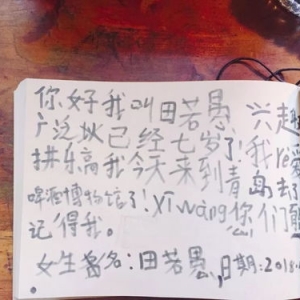 你好我叫田若愚 兴趣
广泛 已经七岁了!我rè爱
拼乐高我今天来到青岛去
啤酒博物馆了!xī wàng你们能
记得我。
女生签名:田若愚,日期:2018.